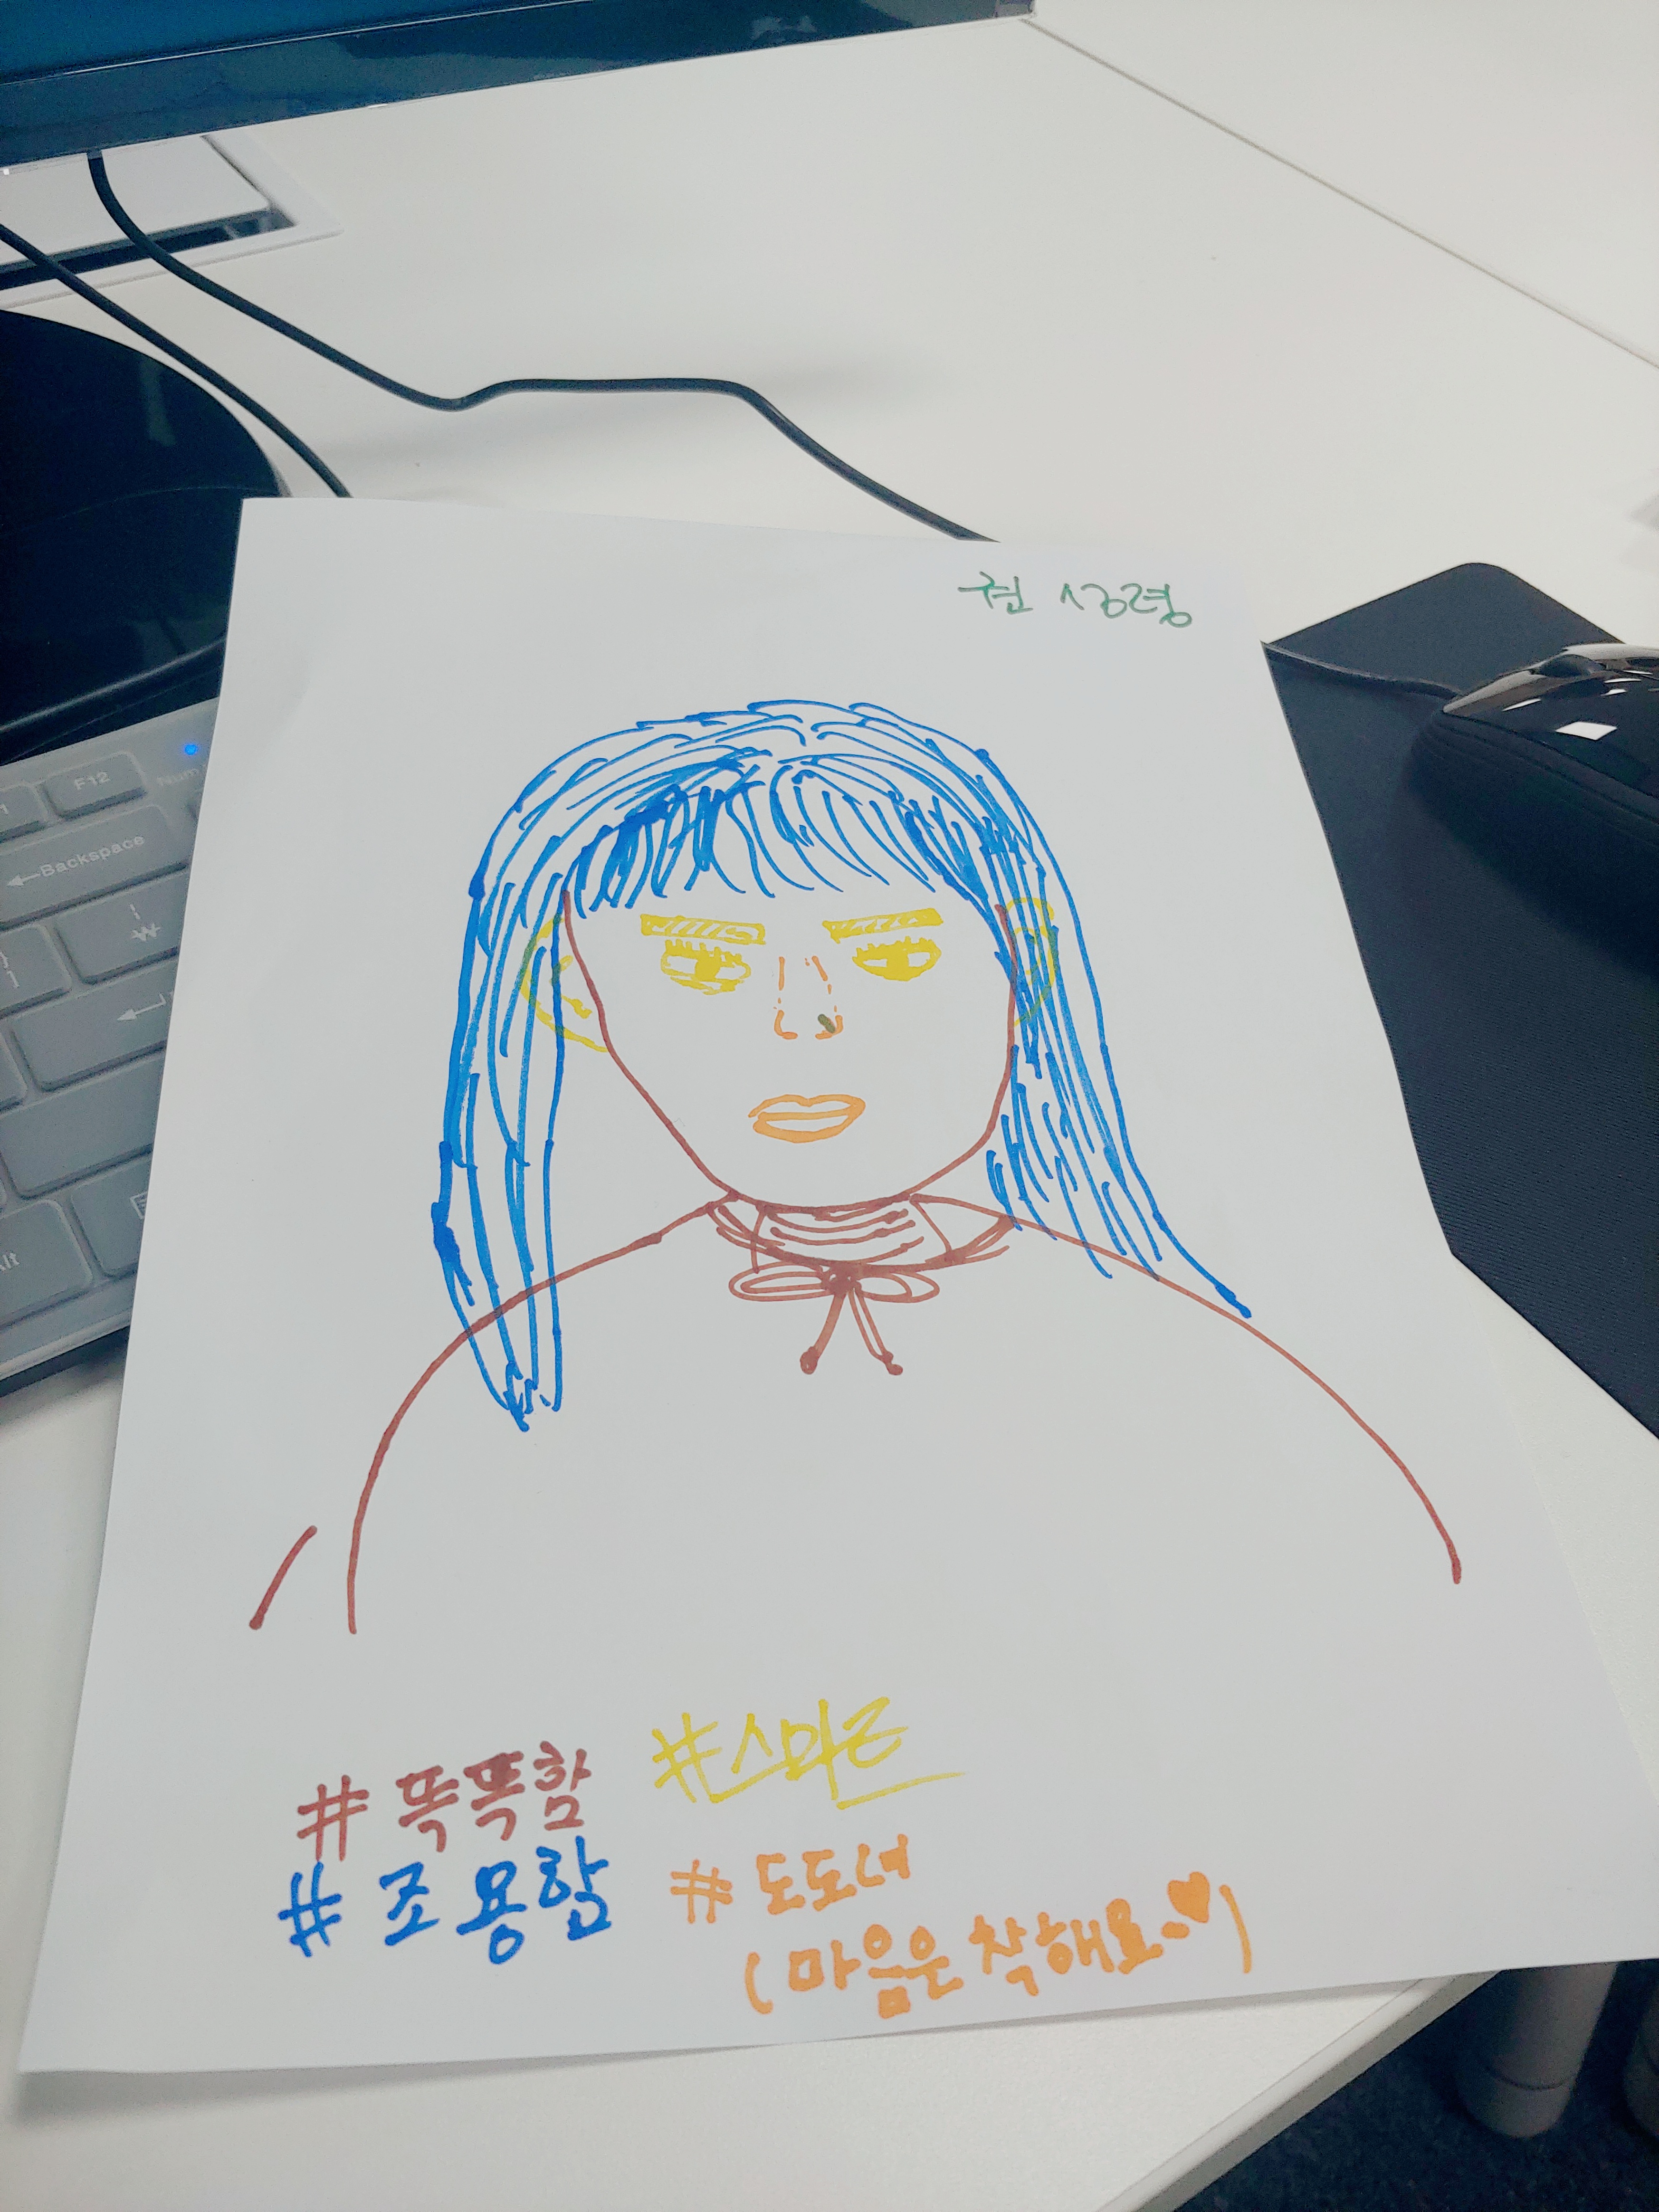 권 성령
F12
Num
Backspace
₩
Alt
#똑똑함 #스마트
#조용함 #도도녀
(마음은 착해요.♥)